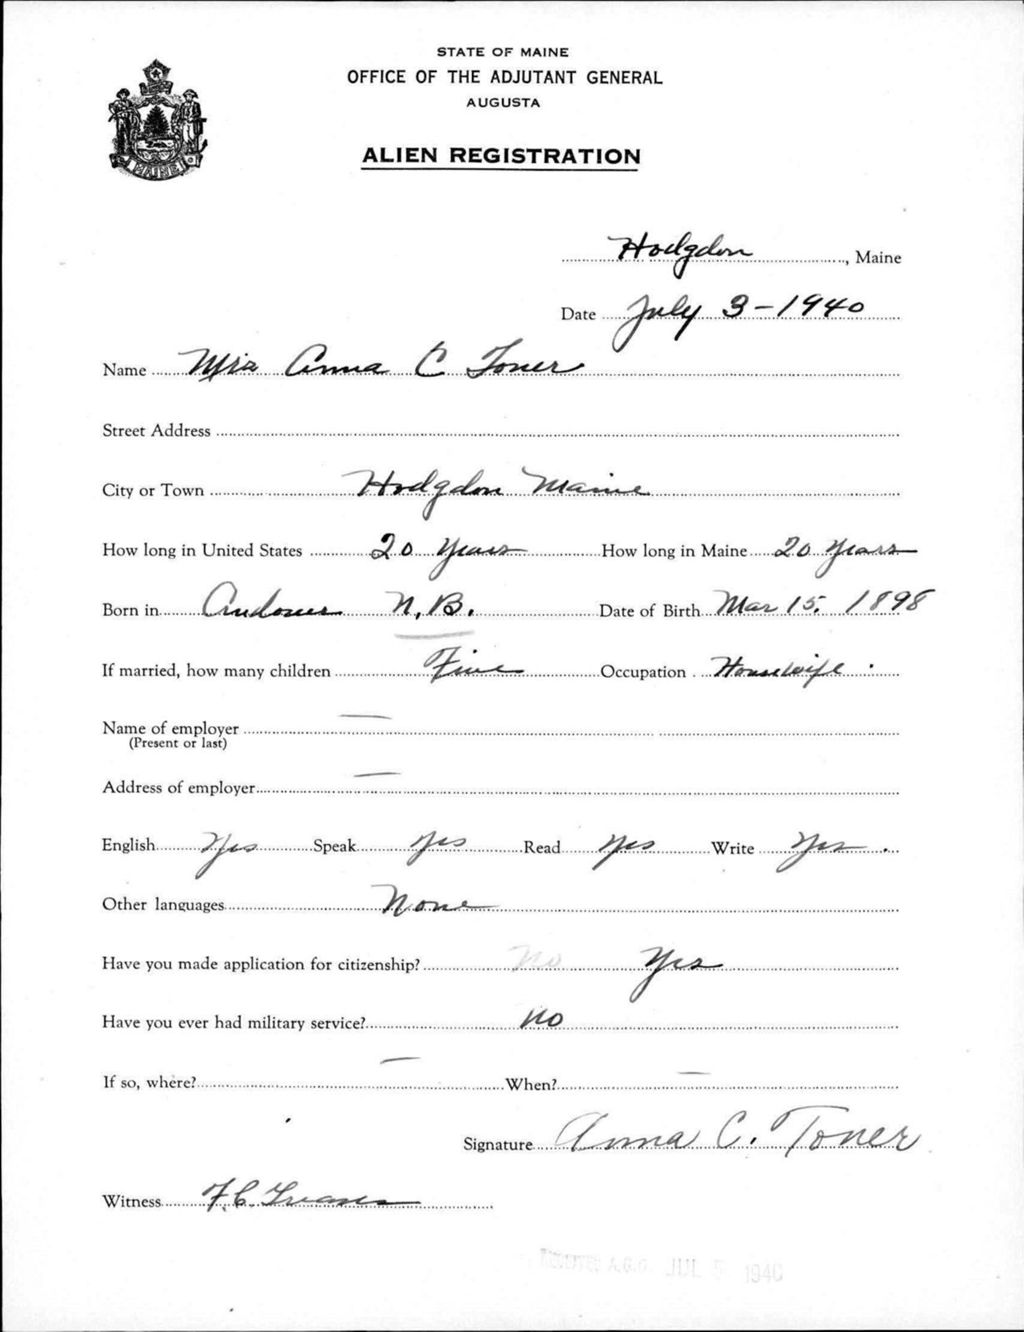 STATE OF MAINE
OFFICE OF THE ADJUTANT GENERAL
AUGUSTA
MAINE
ALIEN REGISTRATION
Hodgdon, Maine
Date July 3-1940
Name Mrs Anna C Toner
Street Address
City or Town Hodgdon Maine
How long in United States 20 years How long in Maine 20 years
Born in Andover N.B. Date of Birth Mar 15. 1898
If married, how many children Five Occupation Housewife
Name of employer
(Present or last)
Address of employer
English Yes Speak Yes Read Yes Write Yes
Other languages None
Have you made application for citizenship? No Yes
Have you ever had military service? No
If so, where? — When? —
Signature Anna C. Toner
Witness F.C.
RECEIVED A.G.O. JUL 5 1940